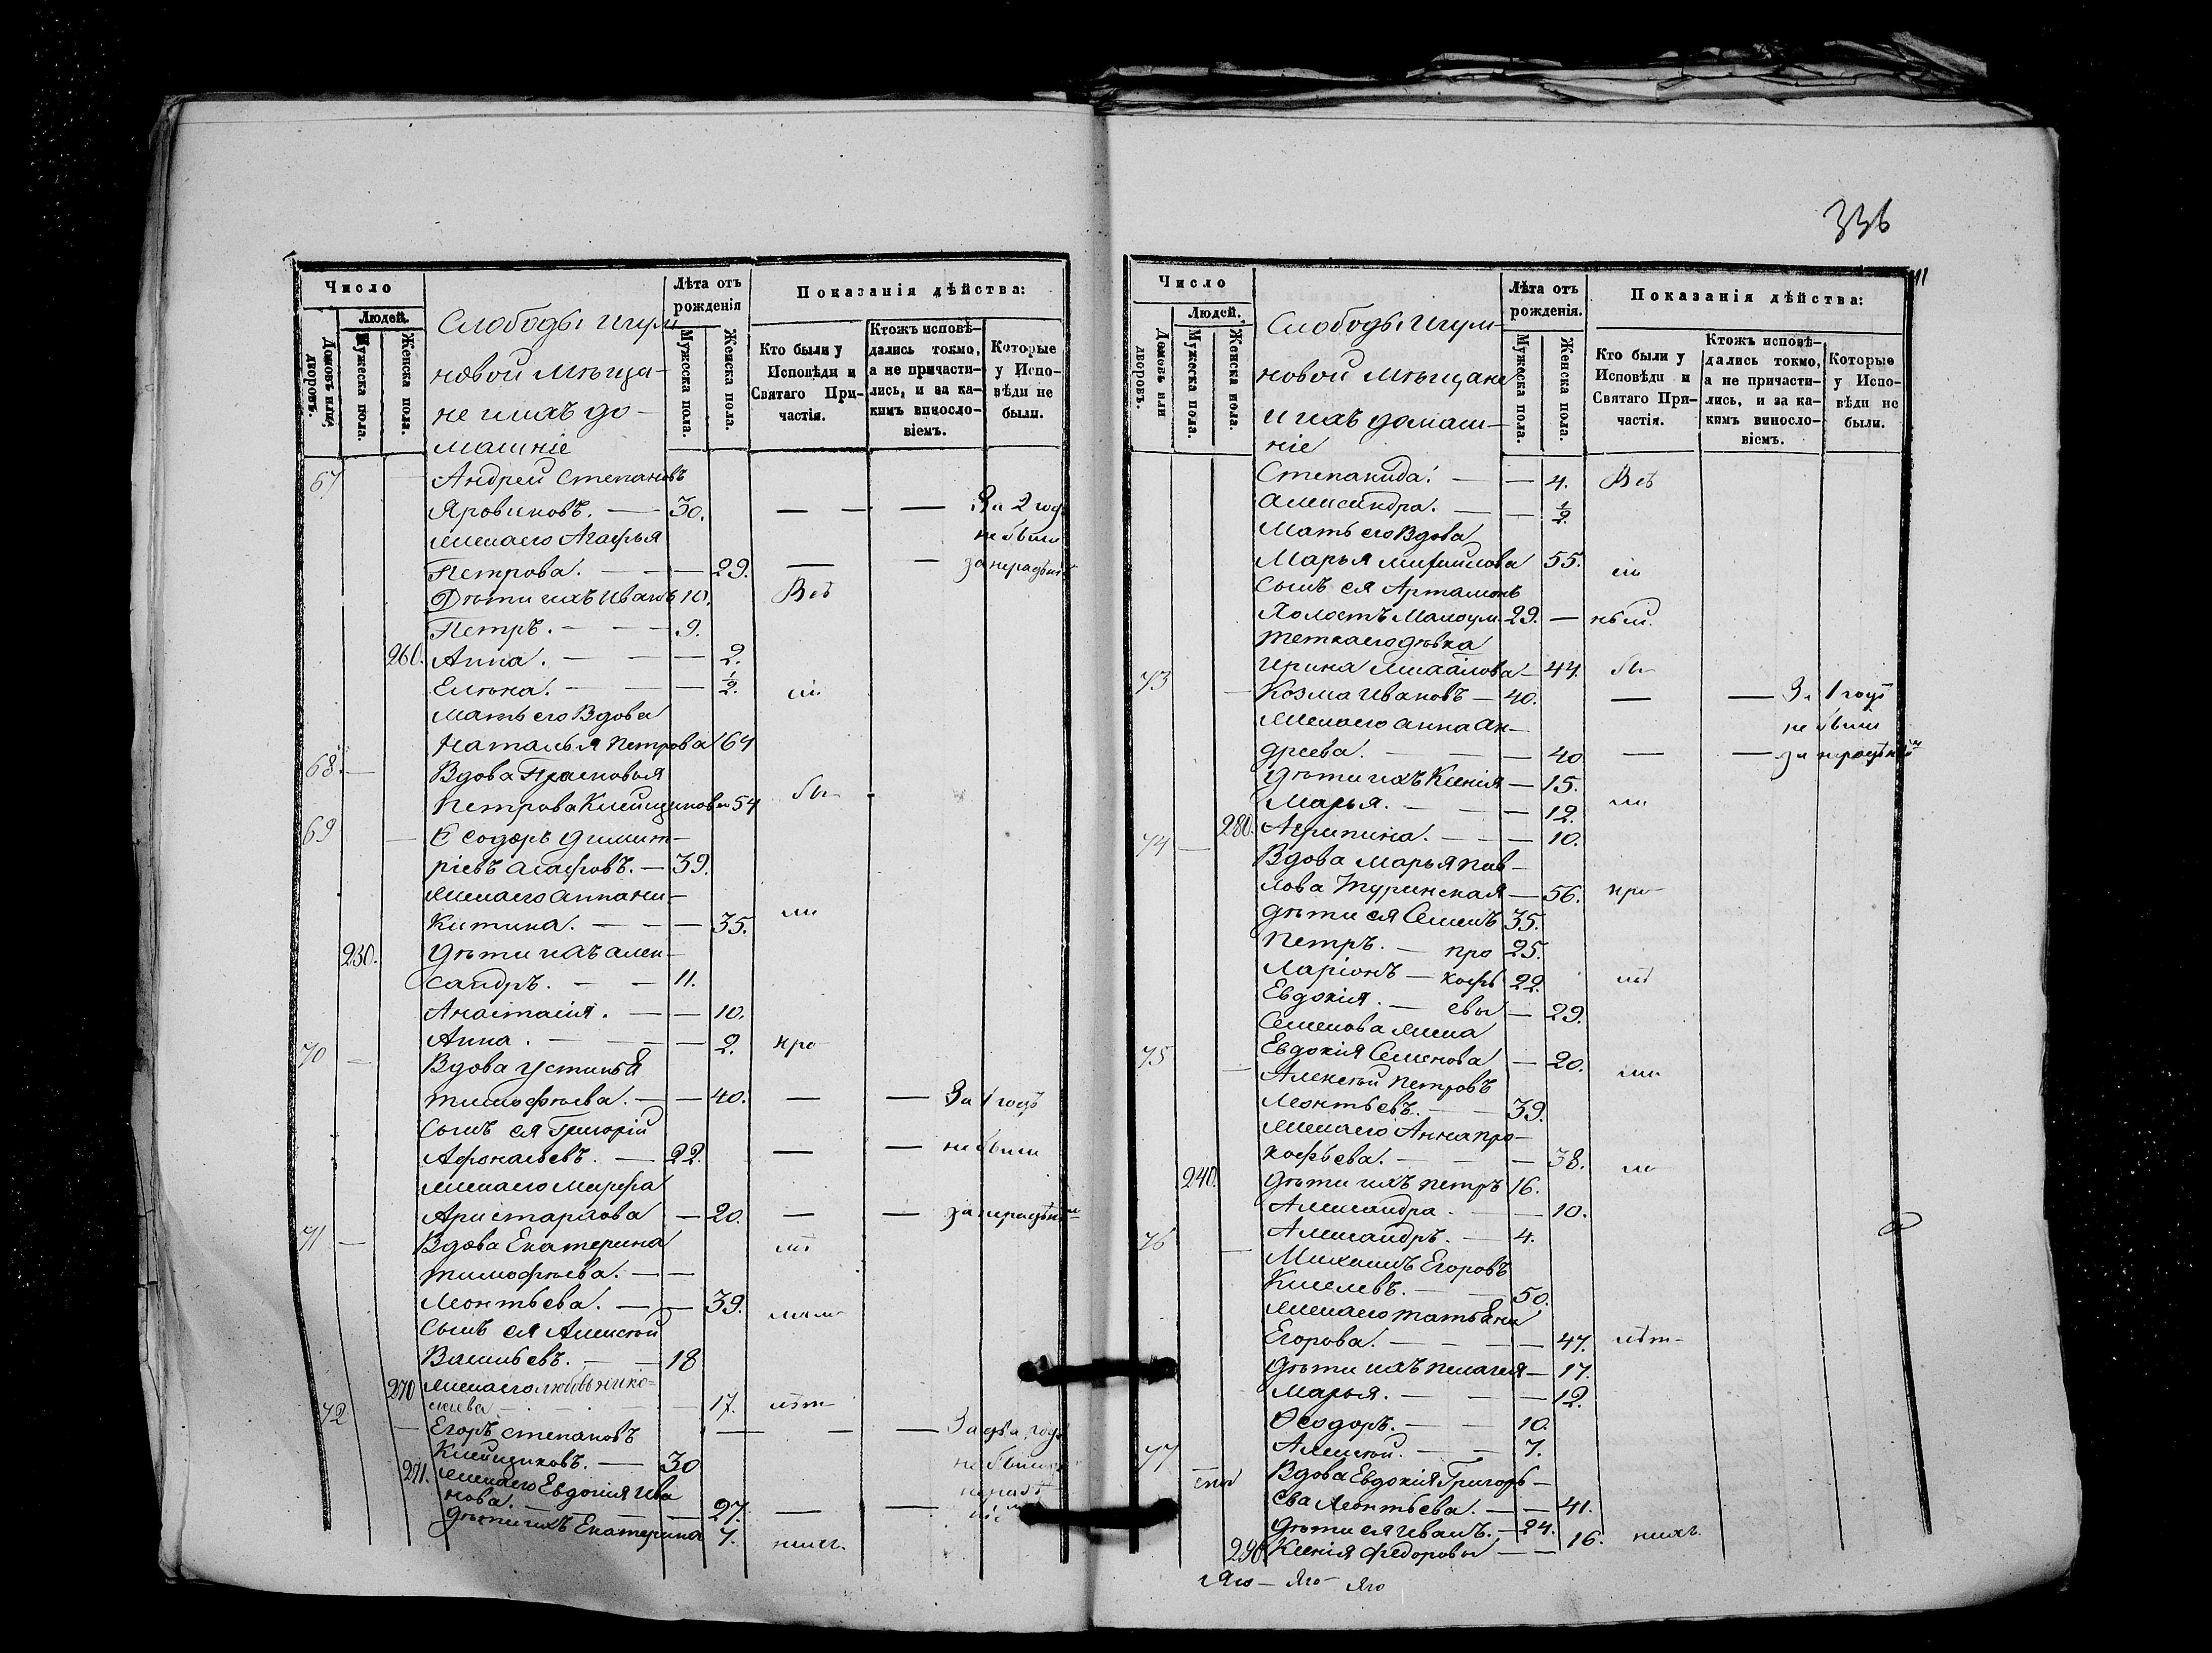 Число
Людей.
Домовъ или дворовъ.
Мужеска пола.
Женска пола.
Слободы Игум
новой Мѣща-
не и ихъ до-
машніе
Лѣта отъ рожденія
Мужеска пола.
Женска пола.
Показанія дѣйства:
Кто были у Исповѣди и Святаго Причастія.
Ктожъ исповѣдались токмо, а не причастились, и за какимъ винословіемъ.
Которые у Исповѣди не были.
67 Андрей Степановъ
Яровиковъ. — 30. — — — За 2 год
Жена его Агафья не были
Петрова. — — 29. — — за нерадѣніе
Дѣти ихъ Иванъ 10. Всѣ
Петръ. — — 9.
260. Анна. — — — 2.
Елена. — — — ½.
Мать его Вдова
Наталья Петрова 64
68. — Вдова Прасковья
Петрова Клейщикова 54 бы-
69 — Ѳеодоръ Димит-
ріевъ Агафовъ. — 39.
Жена его Анна Ни-
китина. — — — 35. ли
230. Дѣти ихъ Алек-
сандръ. — — 11.
Анастасія. — — 10.
Анна. — — — 2. про-
70 — Вдова Устинья
Тимофѣева. — — 40. — — За 1 годъ
Сынъ ея Григорій
Афонасьевъ. — 22. — — не были
Жена его Марфа
Аристархова — 20. — — за нерадѣніе
71 — Вдова Екатерина
Тимофѣева. — —
Леонтьева. — — 39.
Сынъ ея Алексѣй
Васильевъ. — — 18
270 Жена его Любовь Нико-
лаева — 17.
72 — Егоръ Степановъ — — — За два год
Клейщиковъ. — 30 не были
271. Жена его Евдокія Ива
нова. — — — 27. — —
Дѣти ихъ Екатерина 7.
336
11
Число
Людей.
Домовъ или дворовъ.
Мужеска пола.
Женска пола.
Слободы Игум-
новой Мѣщане
и ихъ домаш-
ніе
Лѣта отъ рожденія.
Мужеска пола.
Женска пола.
Показанія дѣйства:
Кто были у Исповѣди и Святаго Причастія.
Ктожъ исповѣдались токмо, а не причастились, и за какимъ винословіемъ.
Которые у Исповѣди не были.
Степанида. — — 4. Всѣ
Александра. — — ½.
Мать его Вдова
Марья Михаилова 55.
Сынъ ея Артамонъ
Холостъ Малоум. 29. —
Тетка его дѣвка
Ирина Михайлова — 44. бы-
73 — Козма Ивановъ — 40. — — За 1 годъ
Жена его Анна Ан- не были
дреева. — — — 40 — — за нерадѣніем
Дѣти ихъ Ксенія — 15.
Марья. — — — 12. ли
280. Агрипина. — — — 10.
74 — Вдова Марья Пав-
лова Туринская — 56. про-
Дѣти ея Семенъ 35.
Петръ. — про 25.
Ларіонъ — кофь 22.
Евдокія. — евы — 29.
Семенова жена
Евдокія Семенова — 20.
75 — Алексѣй Петровъ
Леонтьевъ. — — 39.
Жена его Анна Про-
кофьева. — — — 38.
240. Дѣти ихъ Петръ 16.
Александра. — — 10.
Александръ. — 4.
76 — Михаилъ Егоровъ
Киселевъ. — — 50.
Жена его Татьяна
Егорова. — — — 47.
Дѣти ихъ Пелагея — 17.
Марья. — — — 12.
Ѳеодоръ. — — 10.
Алексѣй. — — 7.
77 Вдова Евдокія Григорь-
ева Леонтьева. — — 41.
Дѣти ея Иванъ. — 24.
290 Ксенія Федоровы — — 16.